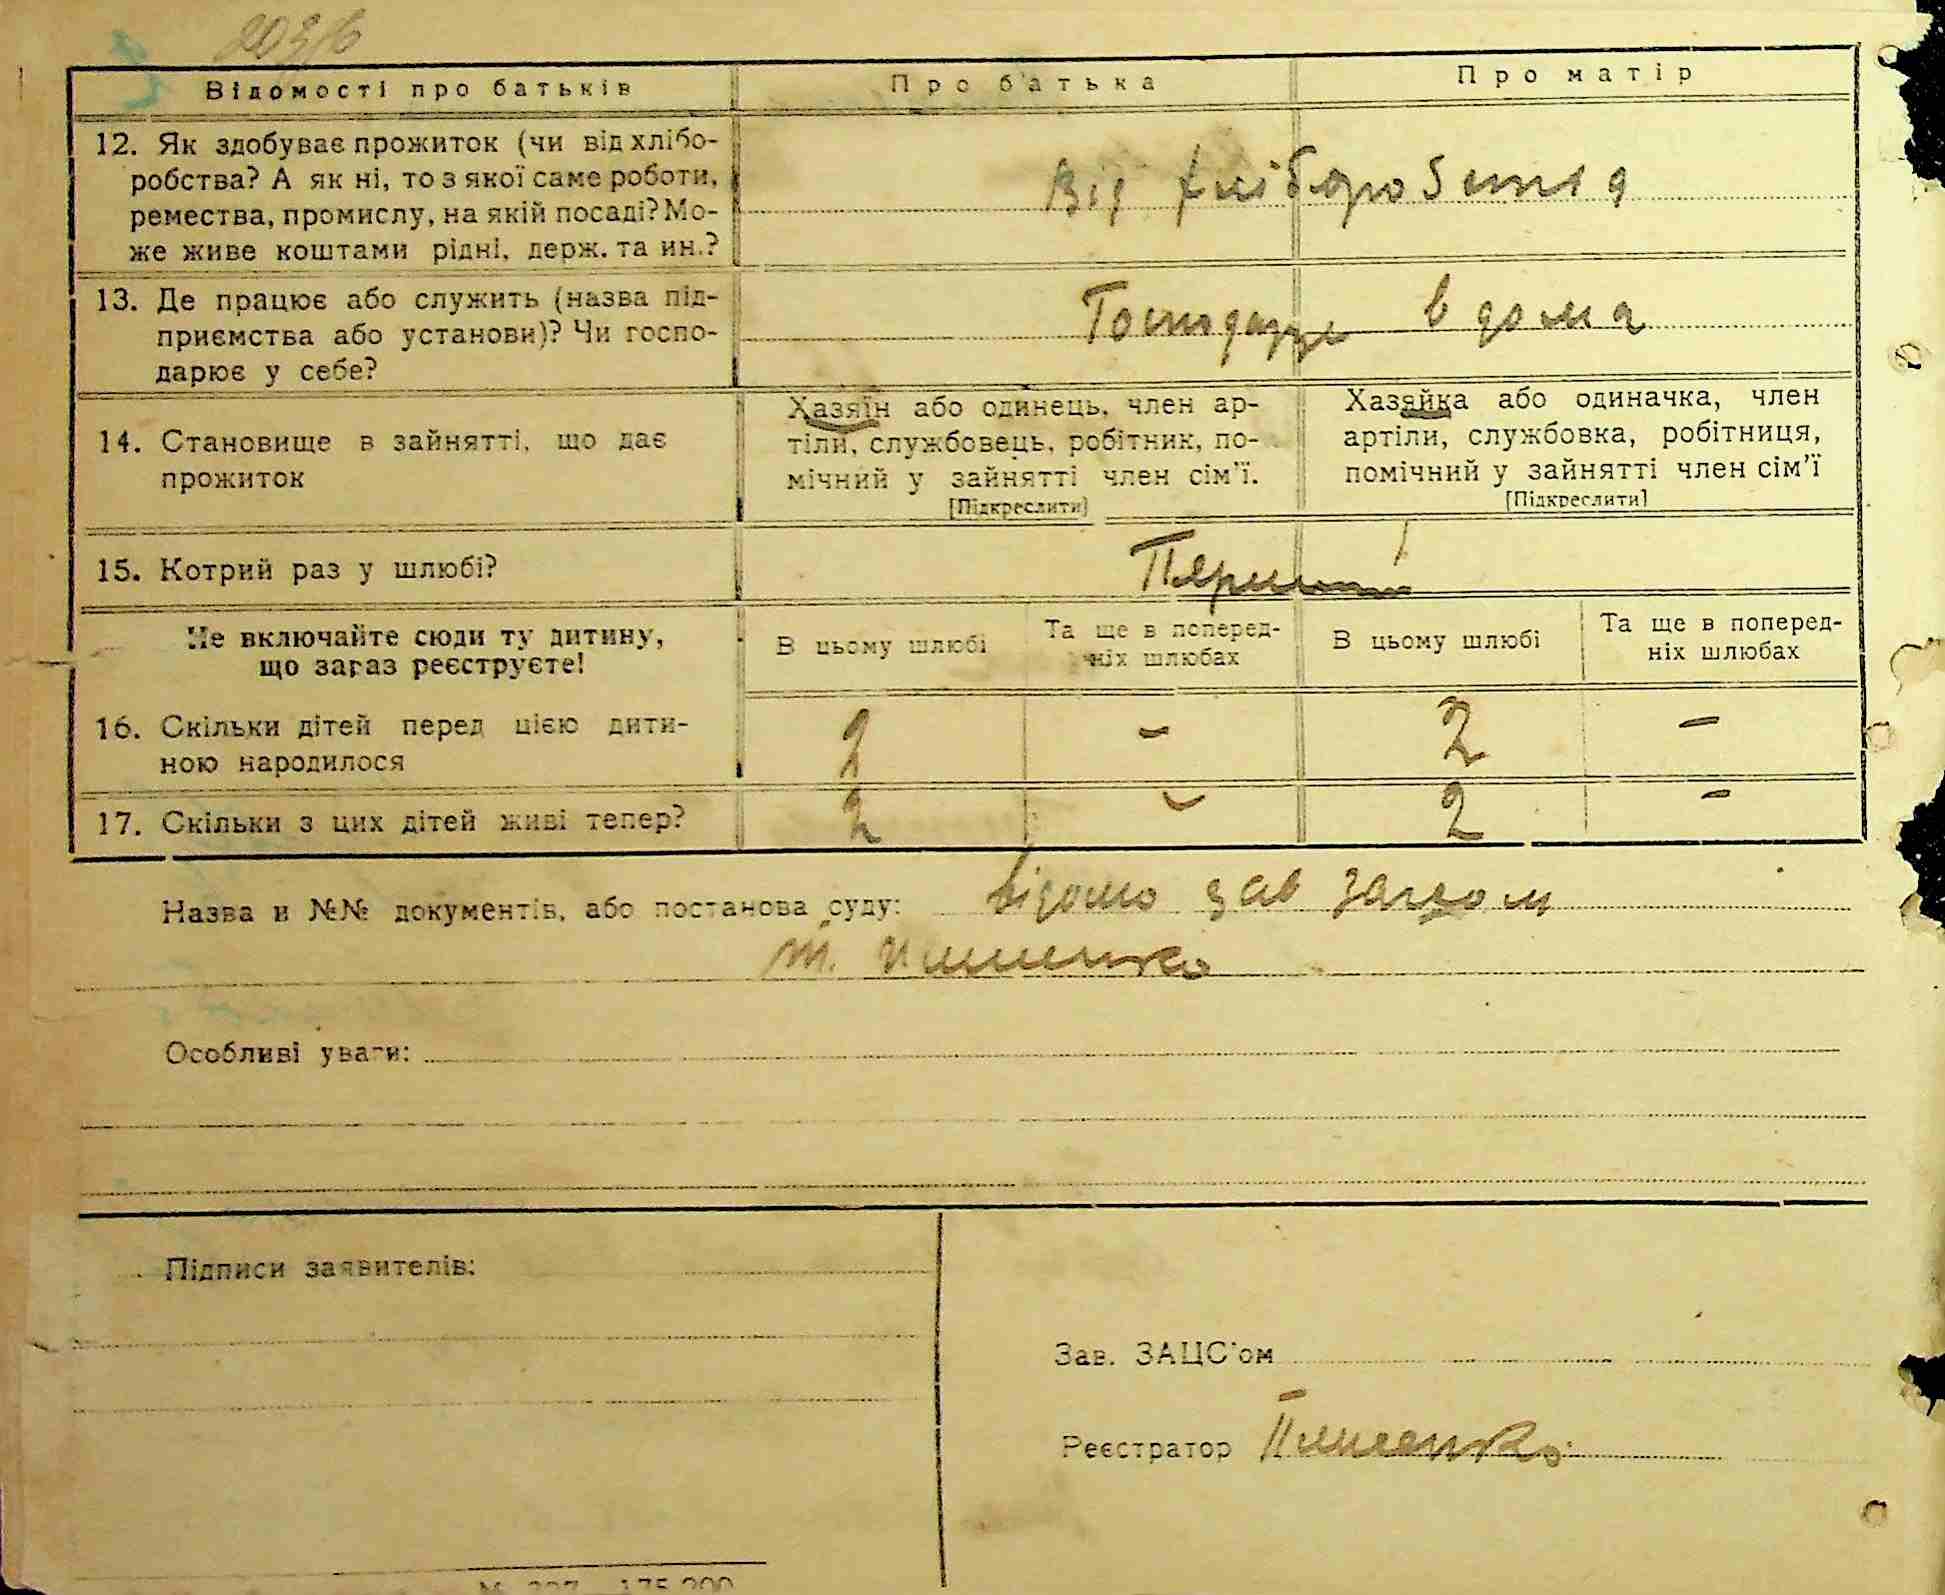 Відомості про батьків
Про батька
Про матір
12. Як здобуває прожиток (чи від хлібо-
робства? А як ні, то з якої саме роботи,
ремества, промислу, на якій посаді? Мо-
же живе коштами рідні, держ. та ин.?
Від хліборобства
13. Де працює або служить (назва під-
приємства або установи)? Чи госпо-
дарює у себе?
Господарює в дома
14. Становище в зайнятті, що дає
прожиток
Хазяїн або одинець, член ар-
тіли, службовець, робітник, по-
мічний у зайнятті член сім'ї.
[Підкреслити]
Хазяйка або одиначка, член
артіли, службовка, робітниця,
помічний у зайнятті член сім'ї
[Підкреслити]
15. Котрий раз у шлюбі?
Перший
Не включайте сюди ту дитину,
що зараз реєструєте!
В цьому шлюбі
Та ще в поперед-
ніх шлюбах
В цьому шлюбі
Та ще в поперед-
ніх шлюбах
16. Скільки дітей перед цією дити-
ною народилося
2 - 2 -
17. Скільки з цих дітей живі тепер?
2 - 2 -
Назва и №№ документів, або постанова суду: відомо зав загсом
т.
Особливі уваги:
Підписи заявителів:
Зав. ЗАЦС'ом
Реєстратор